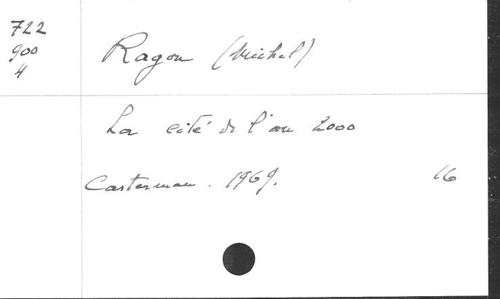 722
900
4
Ragon (Michel)
La cité de l'an 2000
Casterman. 1969.
16